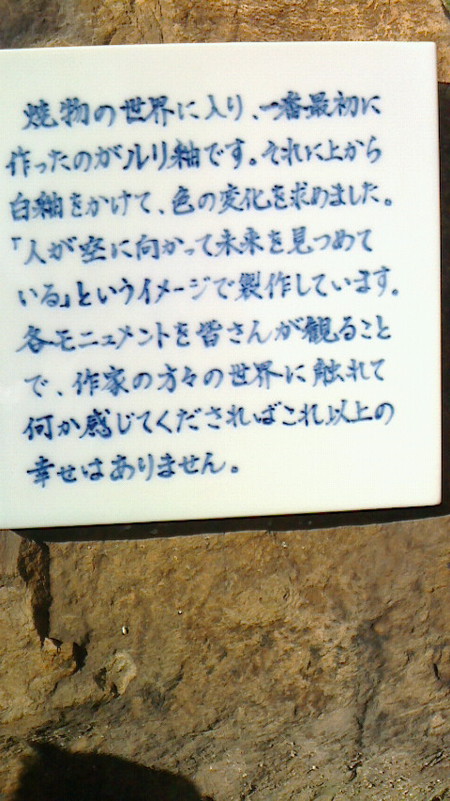 焼物の世界に入り、一番最初に
作ったのがルリ釉です。それに上から
白釉をかけて、色の変化を求めました。
「人が空に向かって未来を見つめて
いる」というイメージで製作しています。
各モニュメントを皆さんが観ること
で、作家の方々の世界に触れて
何か感じてくださればこれ以上の
幸せはありません。